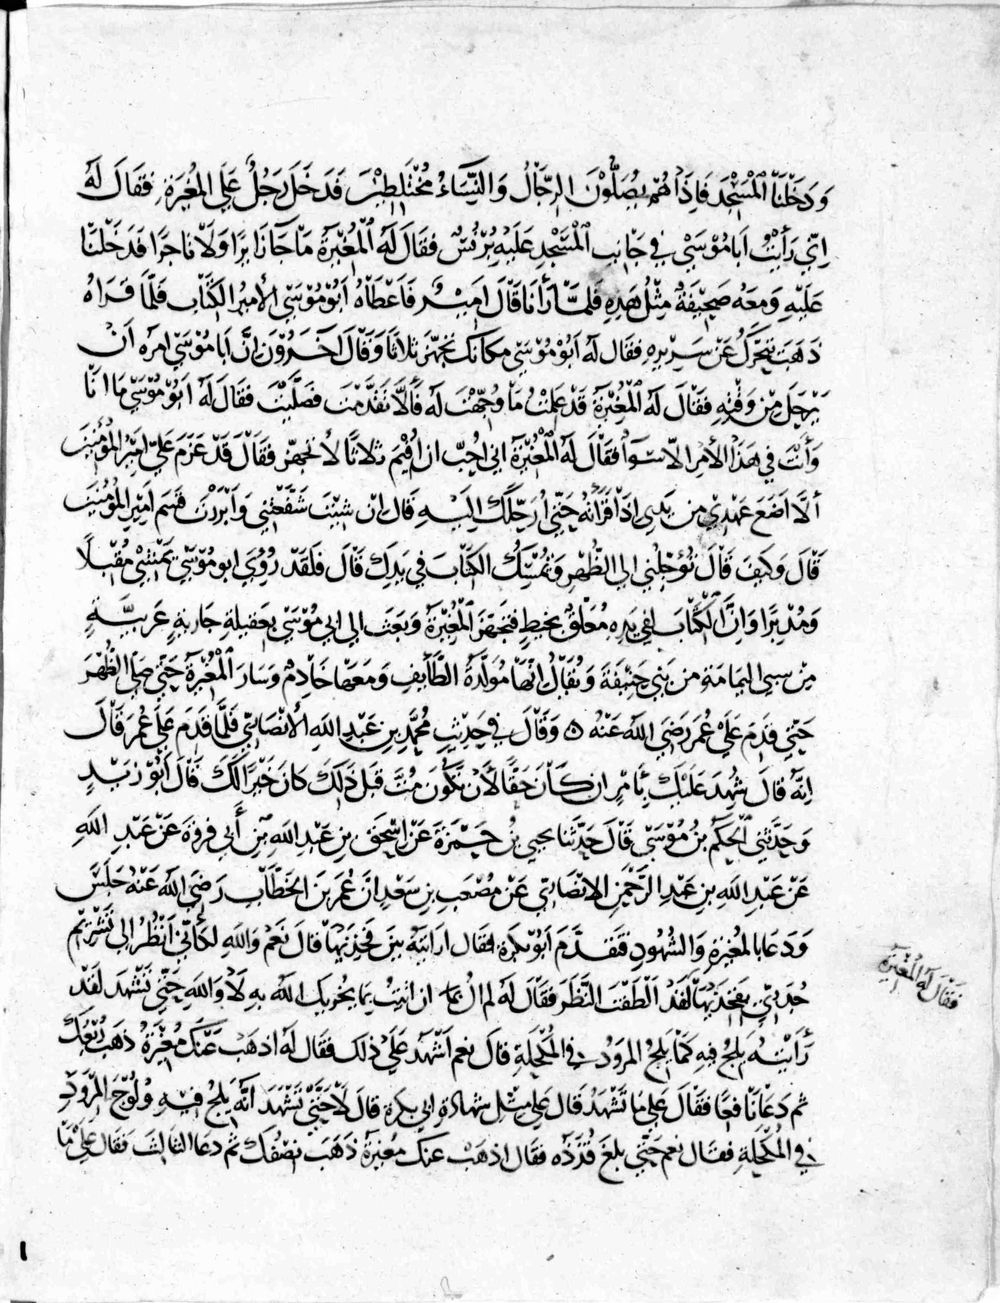 وَدَخَلْنَا الْمَسْجِدَ فَاِذَا هُمْ يُصَلُّوْنَ الرِّجَالُ وَالنِّسَاءُ مُخْتَلِطِيْنَ فَدَخَلَ رَجُلٌ عَلَى المُغيرَةِ فقَالَ لَهُ
اِنّى رَأَيْتُ اَبَا مُوْسَىْ فى جَانِبِ الْمَسْجِدِ عَلَيْهِ بُرْنُسٌ فقَالَ لَهُ الْمُغِيْرَةُ مَا جَازَائِرًا وَلَا تَاجِرًا فَدَخَلْنَا
عَلَيْهِ وَمَعَهُ صَحِيْفَةٌ مِثْلُ هَذِهِ فَلمَّا رَأنَا قَالَ اَمِيْرٌ فَاَعْطَاهُ اَبُوْ مُوْسَى الأمِيْرُ الكِتَابَ فَلمَّا قَرَاهُ
ذَهَبَ يَتَحَرَّكُ عَنْ سَرِيْرِهِ فقَالَ لَهُ اَبُوْ مُوْسَى مَكَانَكَ تَجَهَّزْ ثَلَاثًا وَقَالَ آخَرُوْنَ اِنَّ اَبَا مُوْسَىْ امرَهُ اَنْ
يَرْحَلَ مِنْ وَقْتِهِ فقَالَ لَهُ الْمُغِيْرَةُ قَدْ عَلِمْتُ مَا وُجِّهْتَ لَهُ فَأَلَّا تَقَدَّمْتَ فَصَلَّيْتَ فقَالَ لَهُ ابُوْ مُوْسَىْ مَا انَا
وَأنْتَ فى هَذَا الأمرِ الاّ سَوَاءٌ فقَالَ لَهُ الْمُغِيْرَةُ انى احِبّ ان اُقِيْمَ ثلاثًا لأتجهز فقَالَ قَدْ عَزَمَ عَلىّ امِيْرُ المُؤمِنِيْنَ
ألَّا اضَعَ عَهْدِى مِن يَدِى اذَا قَرَأْتُهُ حَتّى اُرَحِّلَكَ اِلَيْهِ قالَ اِنْ شِيْتَ شَفَّعْتَنِى وَاَبْرَرْتَ قَسَمَ اَمِيْرِ المُؤمِنِيْنَ
قَالَ وَكَيْفَ قَالَ تُؤَجِّلُنِى الى الظُّهْرِ وَتُمْسِكُ الكِتَابَ فى يَدِكَ قَالَ فَلَقَدْ رُؤِىَ ابو مُوْسَىْ يَمْشِىْ مُقْبِلًا
وَمُدْبِرًا وَاِنَّ الْكِتَابَ لفِى يَدِهِ مُعَلَّقٌ بخيطٍ فتَجَهَّزَ الْمُغِيْرَةُ وَبَعَثَ الى ابى مُوْسَىْ بعَقِيلَةِ جَارِيَةٍ عَرَبيَّةٍ
مِنْ سبى اليَمَامَةِ مِن بَنِى حَنِيْفَةَ وَيُقَالُ انَّهَا مُوَلَّدَةُ الطَّائِفِ وَمَعَهَا خَادِمٌ وَسَارَ الْمُغِيْرَةُ حَتّى صَلى الظُّهْرَ
حَتّى قَدِمَ عَلَى عُمَرَ رَضِىَ اللّٰهُ عَنْهُ ه وَقَالَ فى حَدِيْثِ مُحَمَّدِ بنِ عَبْدِ اللهِ الأَنْصَارِىّ فَلَمَّا قَدِمَ عَلَى عُمَرَ قَالَ
اِنَّهُ قَالَ شُهِدَ عَلَيْكَ بِأَمْرٍ اِنْ كَانَ حَقًّا لَأَنْ تَكُوْنَ مُتَّ قَبْلَ ذَلِكَ كَانَ خَيْرًا لَكَ قَالَ أَبُوْ زَيْدٍ
وَحَدَّثَنِى الحَكَمُ بنُ مُوْسَىْ قَالَ حَدَّثَنَا يحيى بْنُ حَمْزَةَ عَنْ اِسْحَقَ بنِ عَبْدِ اللهِ بْنِ أَبِى فروَةَ عَنْ عَبْدِ اللهِ
عَنْ عَبْدِ اللهِ بنِ عَبْدِ الرَّحْمنِ الانْصَارِىّ عَنْ مُصْعَبِ بْنِ سَعْدٍ انَّ عُمَرَ بنَ الخَطَّابِ رَضِىَ اللهُ عَنهُ جَلَسَ
وَدَعَا بالمُغِيرَةِ وَالشُّهُودِ فتَقَدَّمَ اَبُوْ بَكْرَةَ فقال ارَايْتَهُ بَيْنَ فَخِذَيْهَا قالَ نَعَمْ وَاللهِ لكَأَنّى اَنْظُرُ الى تَشْرِيْمِ
جُدَرِىّ بفَخِذَيْهَا
فَقَالَ لَهُ الْمُغِيْرَةُ
لَقَدْ اَلْطَفْتَ النَّظَرَ فقَالَ لَهُ لم الُ ان اثبت بِمَا يُخزِيكَ اللهُ بِهِ قَالَ لَا وَاللهِ حَتّى تَشْهَدَ لَقَدْ
رَأَيْتَهُ يَلِجُ فِيهِ كَمَا يَلجُ المِرْوَدُ فى المُكْحُلَةِ قَالَ نعَم اَشْهَدُ عَلَى ذلِكَ فقَالَ لَهُ اذهَبْ عَنْكَ مُغِيْرَةُ ذهَبَ رُبْعُكَ
ثم دَعَا نَافِعًا فقَالَ عَلى مَا تَشْهَدُ قَالَ عَلى مِثْلِ شهَادَةِ ابى بكرَةَ قَالَ لَا حَتّى تَشْهَدَ انَّهُ يَلِجُ فيهِ وُلُوْجَ المِرْوَدِ
فى المُكْحُلَةِ فقَالَ نعم حَتّى بلغَ قُذَذَهُ فقَال اذهَبْ عنكَ مغيرَةُ ذَهَبَ نِصْفُكَ ثم دعَا الثالثَ فقَال عَلى مَا